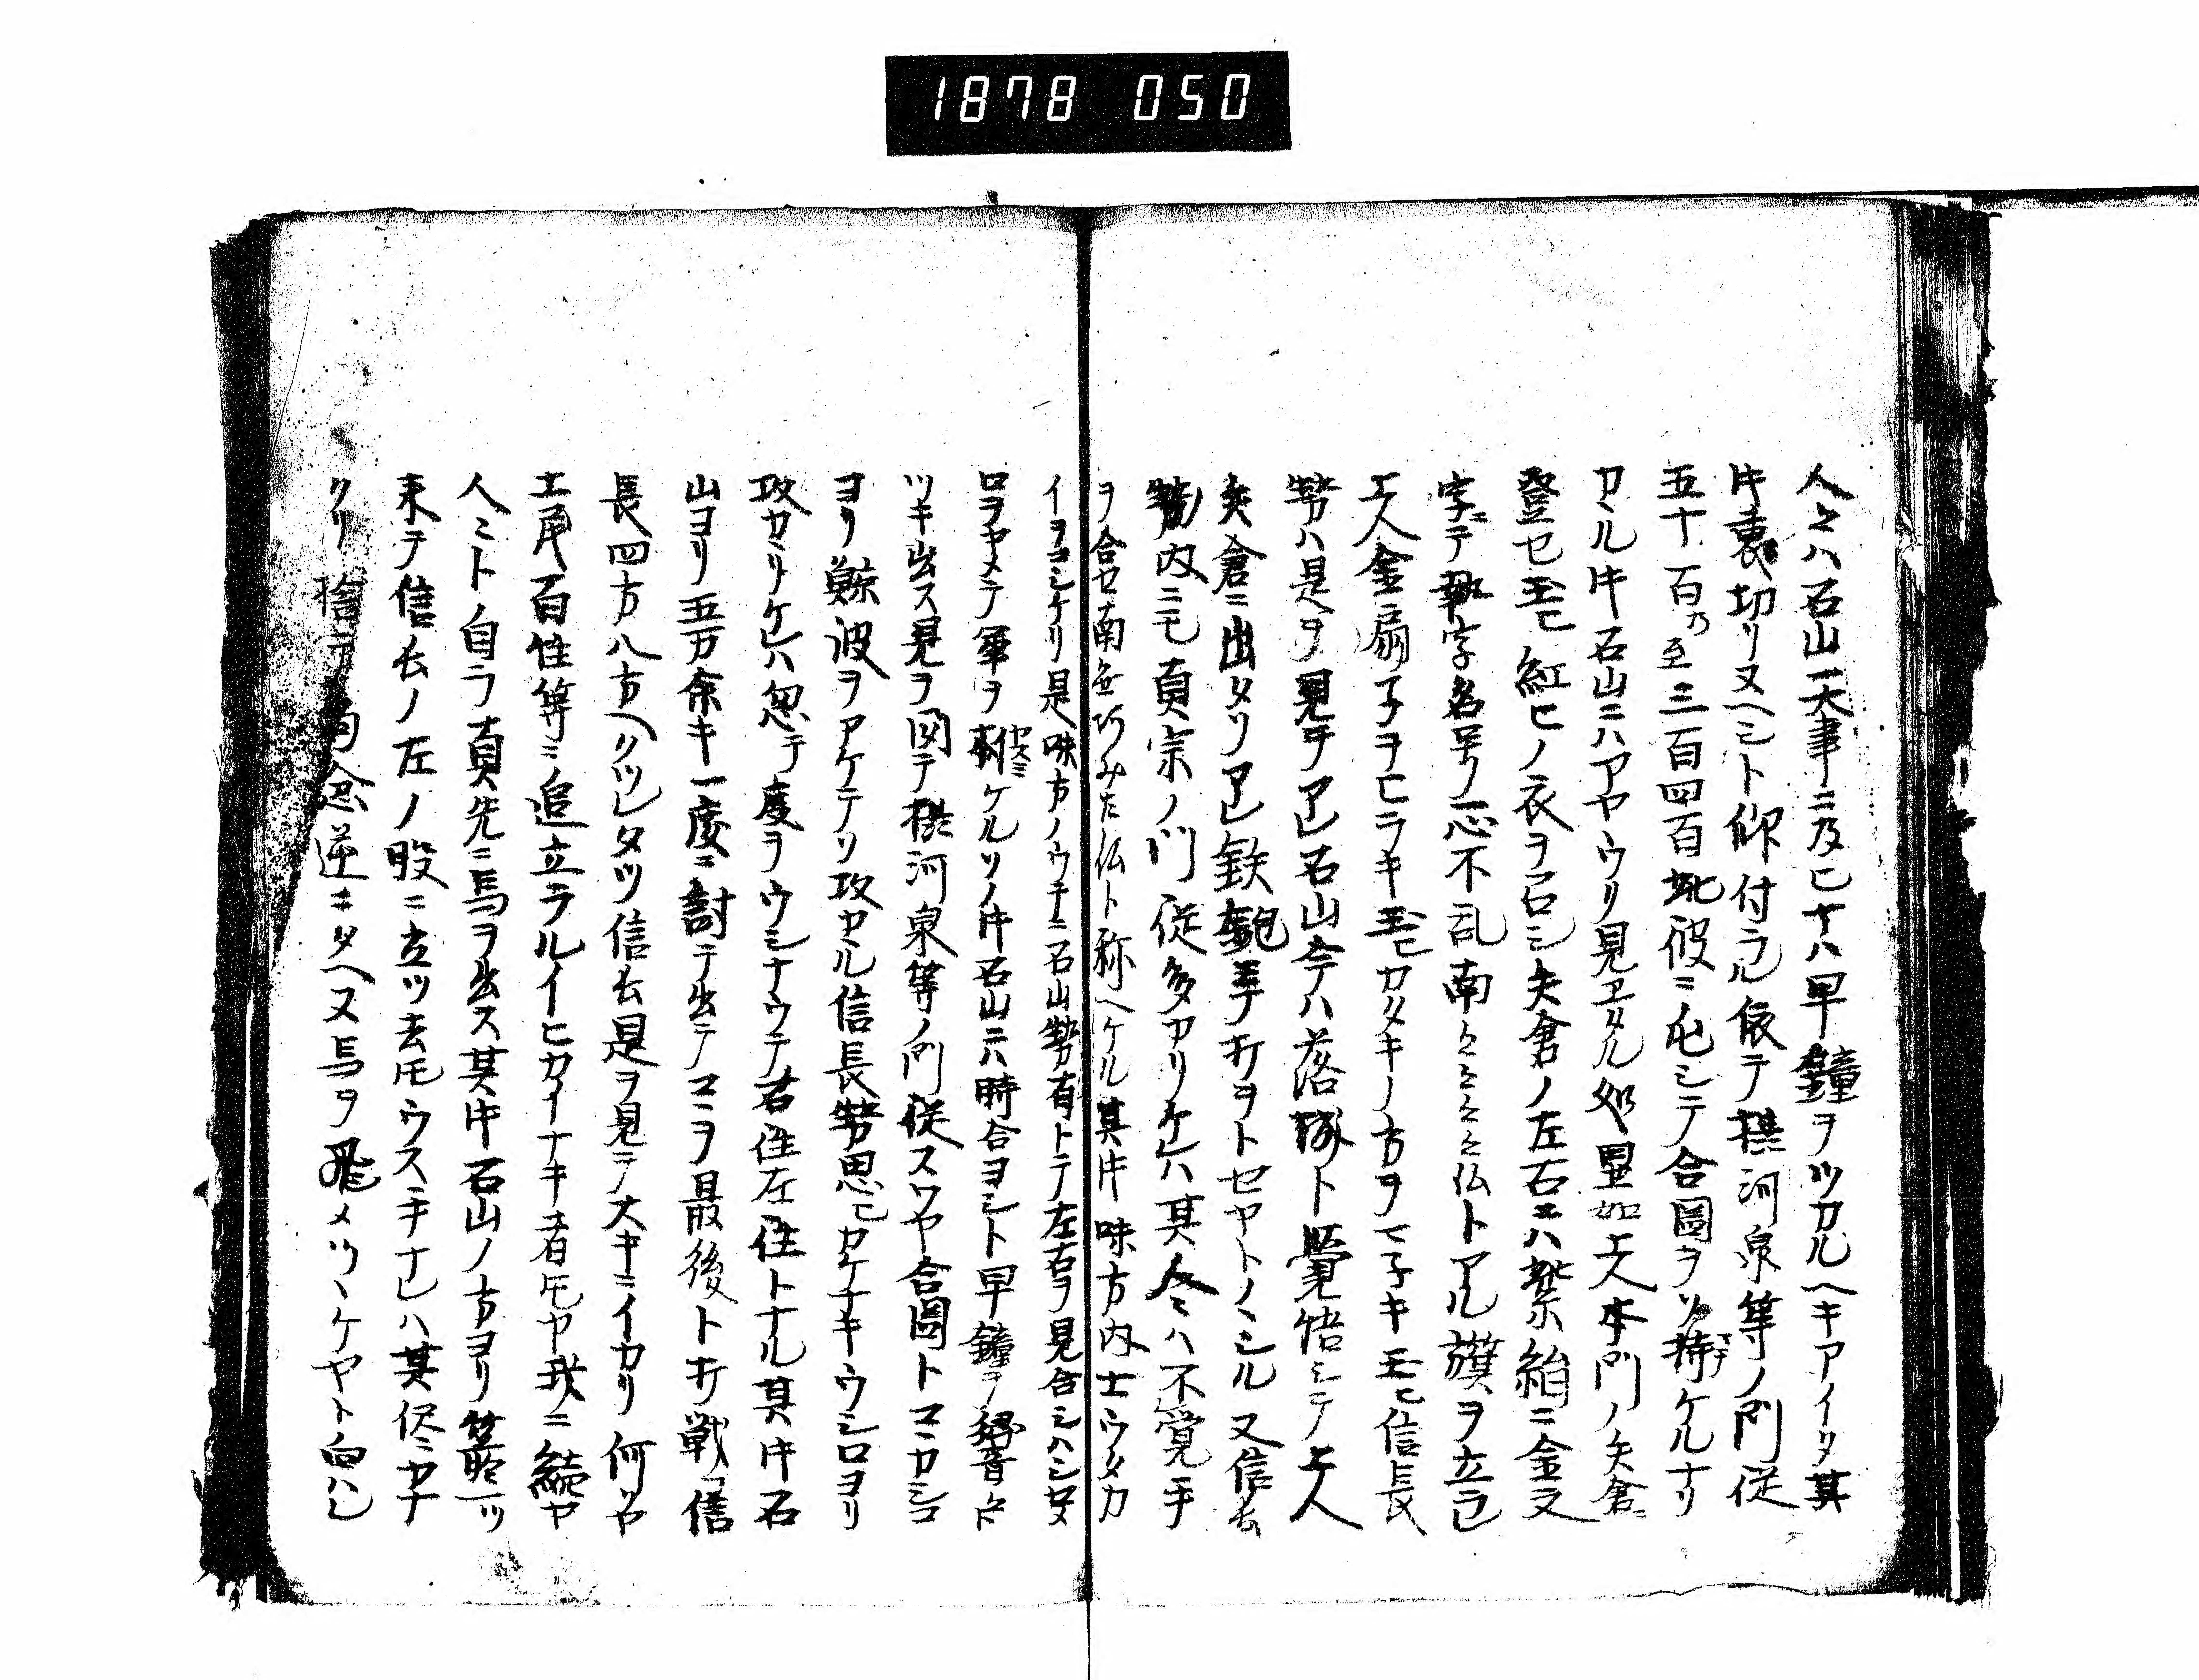 1878 050
人々ハ石山一大事ニ及ヒナハ早鐘ヲツカルヘキアイタ其
時裏切リ又ヘシト仰付ラル依テ摂河泉等ノ門従
五十百乃至三百四百此彼ニ屯シテ合圖ヲソ待ケルナリ
カヽル時石山ニハアヤウリ見エタル処顕如上人本門ノ矢倉
登セ玉ヒ紅ヒノ衣ヲ召シ矢倉ノ左右ニハ紫絹ニ金文
字ニテ執字名号ノ一心不乱南々々々々仏トアル旗ヲ立ラレ
上人金扇子ヲヒラキ玉ヒカタキノ方ヲマ子キ玉ヒ信長
勢ハ是ヲ見テアレ石山今ハ落城ト覚悟シテ上人
矢倉ニ出タリアレ鉄砲ヲ打ヲトセヤトノヽシル又信長
勢ノ内ニモ真宗ノ門従多カリケレハ其人々ハ不覚手
ヲ合セ南無阿みた仏ト称ヘケル其時味方内士ウタカ
イヲコシケリ是味方ノウチニ石山勢有トテ左右ヲ見合シハシタ
ロラヤメテ軍ヲ猶ケルソノ時石山ニハ時合ヨシト早鐘ヲ
ツキ出ス見ヲ図テ摂河泉等ノ門従スワヤ合圖トコヽカシコ
ヨリ鯨波ヲアケテソリ攻カル信長勢思ヒカケナキウシロヨリ
攻カヽリケレハ忽テ度ヲウシナウテ右往左往トナル其時石
山ヨリ五万余キ一度ニ討テ出テコヽヲ最後ト打戦フ信
長四方八方ヘリツレタツ信長是ヲ見テ大キニイカリ何ソヤ
土民百性等ニ追立ラルイヒカイナキ者トモヤ我ニ続ヤ
人ミト自ラ真先ニ馬ヲ出ス其時石山ノ方ヨリ箭一ツ
来テ信長ノ左ノ股ニ立ツ去トモウステナレハ其侭ニカナ
クリ捨テ向念逆ニタヘス馬ヲ飛メツヽケヤト向ハレ